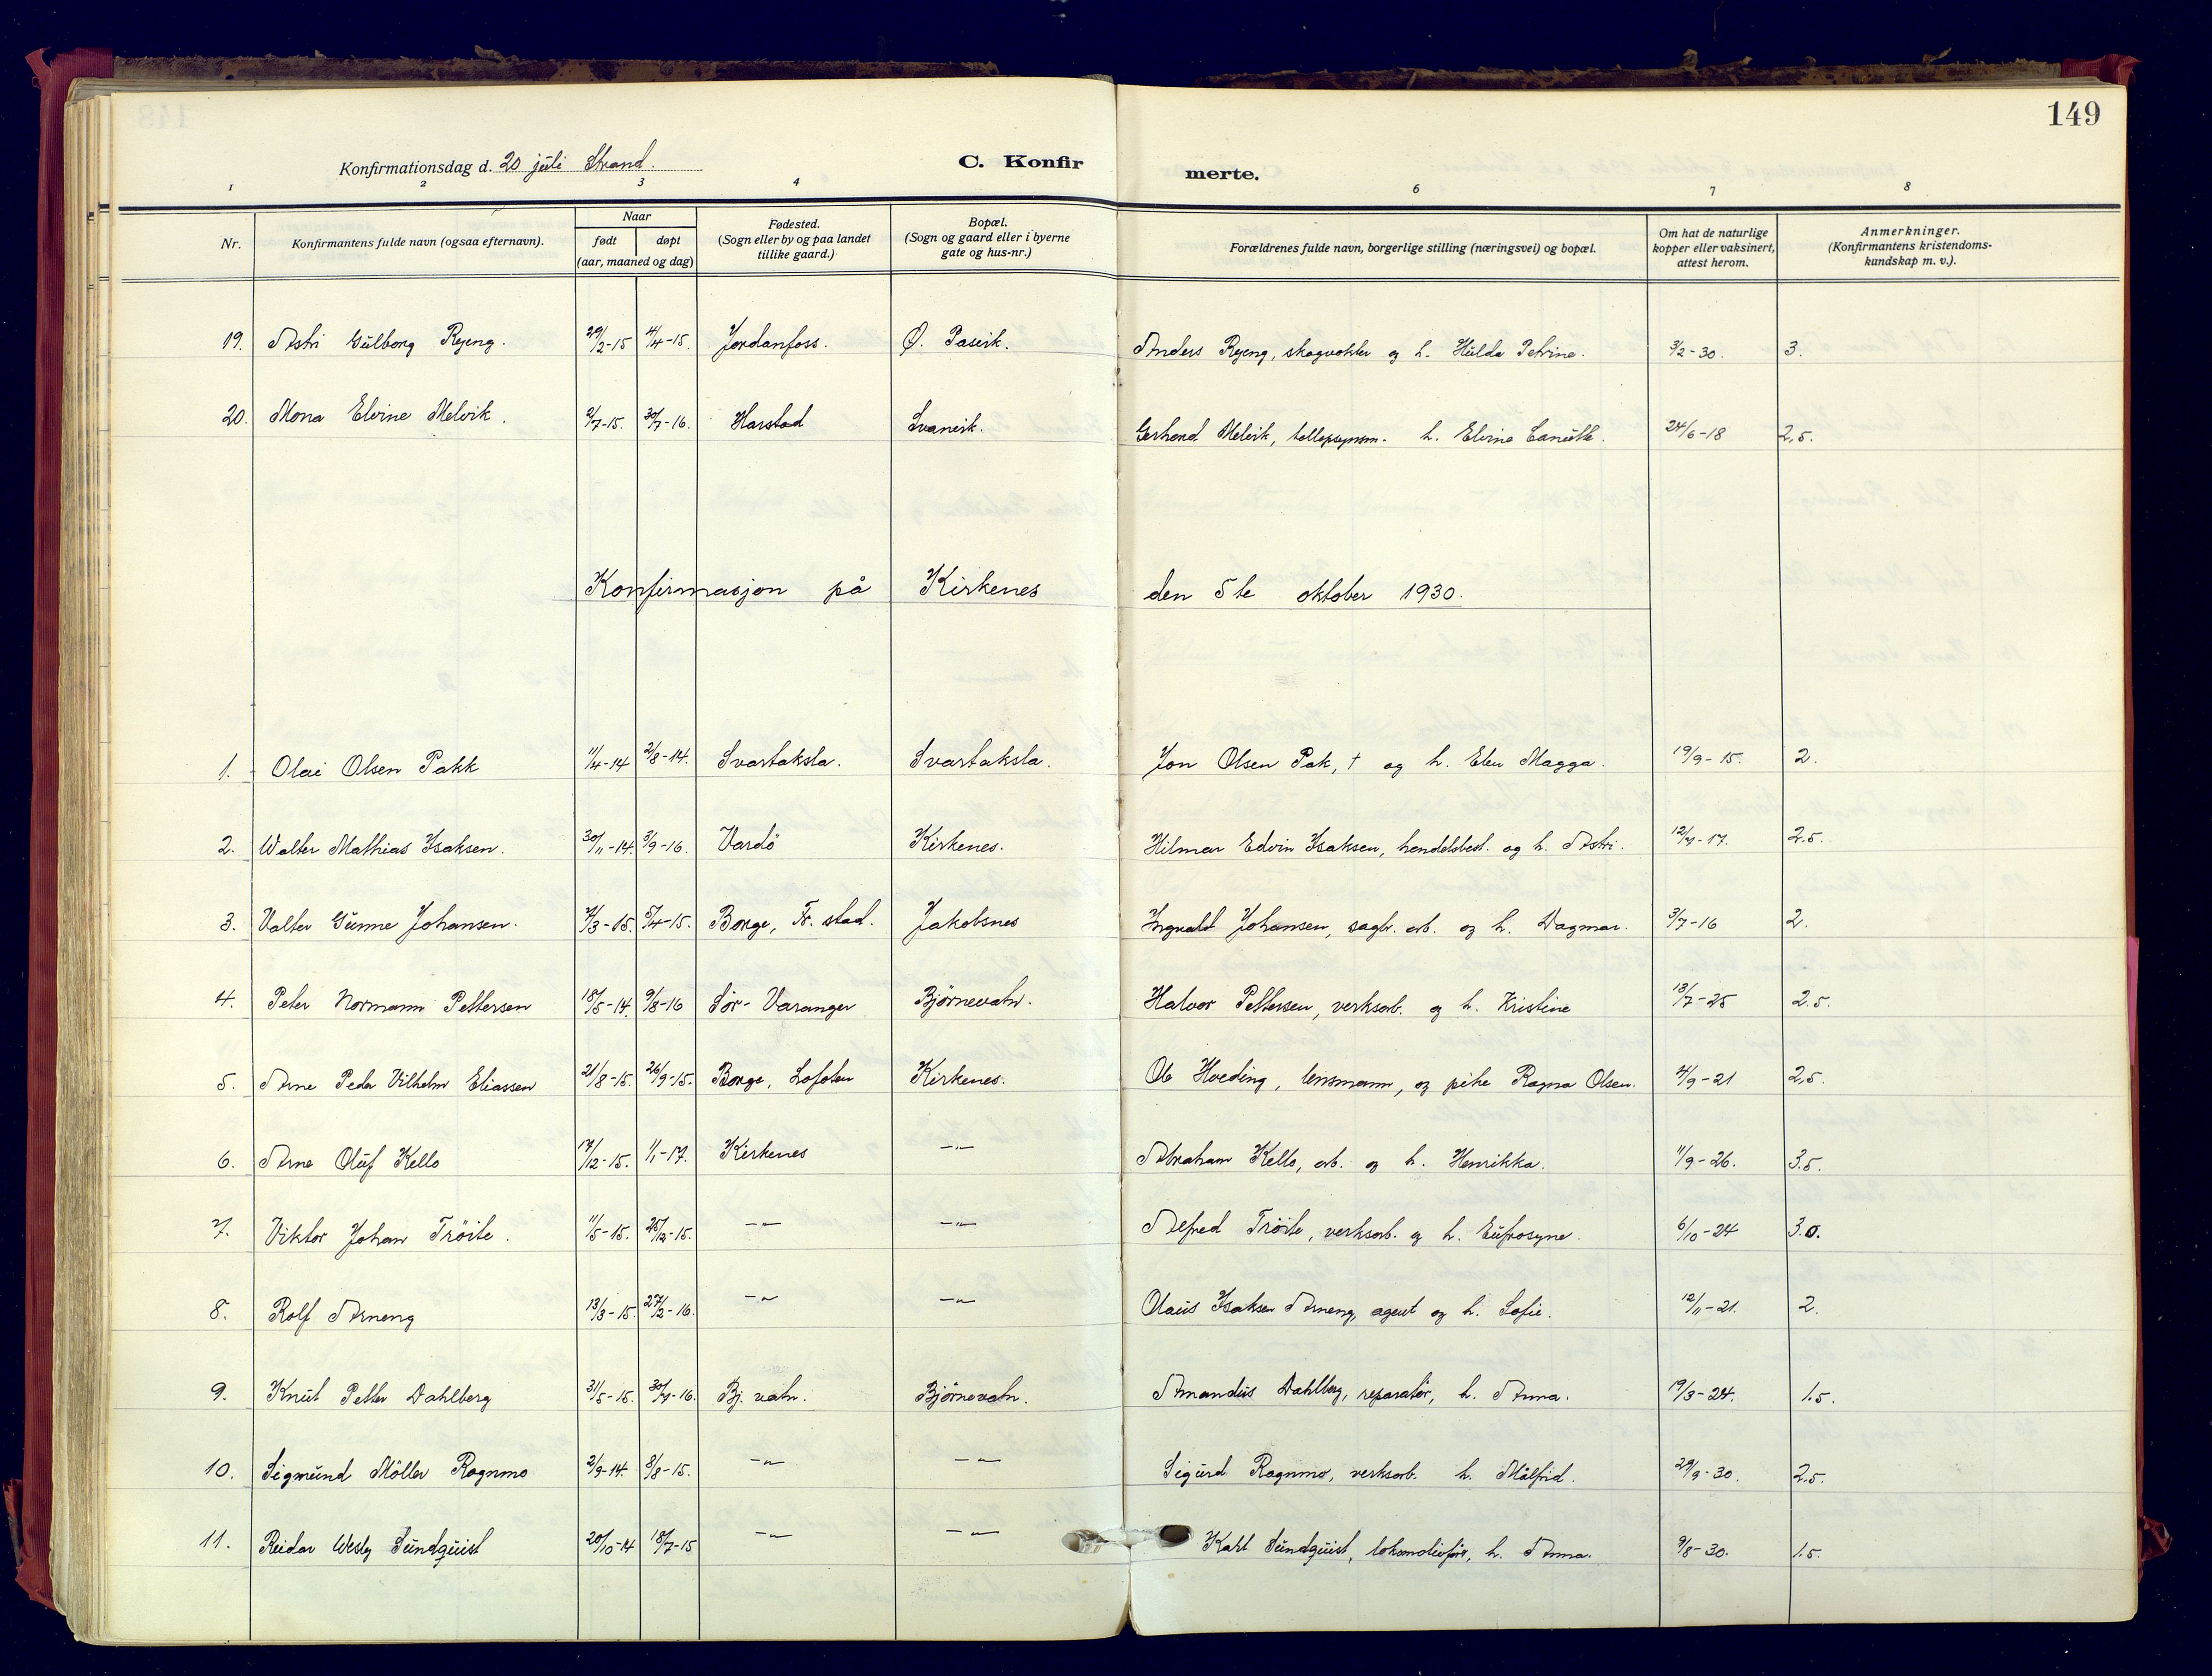 149
Konfirmationsdag d. 20 juli Strand.
C. Konfir merte.
1 2 3 4 6 7 8
Nr. | Konfirmantens fulde navn (ogsaa efternavn). | Naar født døpt (aar, maaned og dag) | Fødested. (Sogn eller by og paa landet tillike gaard.) | Bopæl. (Sogn og gaard eller i byerne gate og hus-nr.) | Forældrenes fulde navn, borgerlige stilling (næringsvei) og bopæl. | Om hat de naturlige kopper eller vaksinert, attest herom. | Anmerkninger. (Konfirmantens kristendoms-kundskap m. v.).
19. Astri Gulborg Ryeng. 29/2-15 4/4-15. Jordanfoss. Ø. Pasvik. Anders Ryeng, skogvokter og h. Hulda Petrine. 3/2-30. 3.
20. Mona Elvine Melvik. 2/7-15. 30/7-16. Harstad Svanvik. Gerhard Melvik, h. Elvine 24/6-18 2,5.
Konfirmasjon på Kirkenes den 5te oktober 1930.
1. Olai Olsen Pakk 11/4-14 2/8-14. Svartaksla. Svartaksla. Jon Olsen Pak, † og h. Elen Magga. 19/9-15. 2.
2. Walter Mathias Isaksen. 30/11-14. 3/9-16. Vardö Kirkenes. Hilmar Edvin Isaksen, handelsbest. og h. Astri. 12/7-17. 2,5.
3. Valter Gunne Johansen. 4/3-15. 5/4-15. Borge, Fr. stad. Jakobsnes Ingvald Johansen, sagbr. arb. og h. Dagmar. 3/7-16 2.
4. Peter Normann Pettersen 18/5-14. 9/8-16 Sör-Varanger Björnevatn. Halvor Pettersen, verksarb. og h. Kristine 13/7-25 2.5.
5. Arne Peder Vilhelm Eliassen 21/8-15. 26/9-15. Borge, Lofoten Kirkenes. Ole Hveding, lensmann, og pike Ragna Olsen. 4/9-21 2,5.
6. Arne Oluf Kello 17/12-15. 1/1-17. Kirkenes —"— Abraham Kello, arb. og h. Henrikka. 11/9-26. 3.5.
7. Viktor Johan Tröite. 11/5-15. 25/12-15. —"— —"— Alfred Tröite, verksarb. og h. Eufrosyne. 6/10-24 3.0.
8. Rolf Arneng 13/3-15. 27/2-16. —"— —"— Olaus Isaksen Arneng, agent og h. Sofie. 12/11-21. 2.
9. Knut Petter Dahlberg 31/5-15. 30/7-16. Bj. vatn. Björnevatn. Amandus Dahlberg, reparatör, h. Anna. 19/3-24. 1.5.
10. Sigmund Möller Rognmo 2/9-14. 8/8-15. —"— —"— Sigurd Rognmo, verksarb. h. Målfrid. 29/9-30. 2.5.
11. Reidar Wesly Sundquist 20/10-14 18/7-15 —"— —"— Karl Sundquist, lokomotivför, h. Anna. 9/8-30. 1.5.